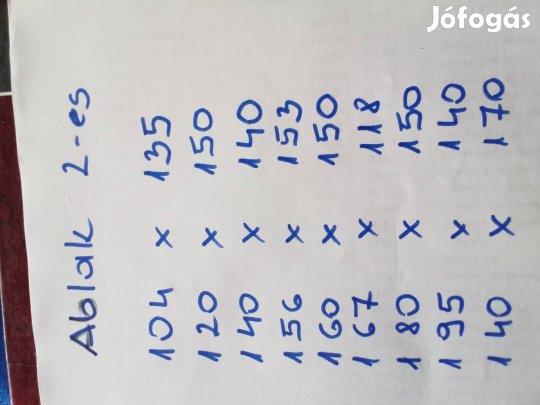 Jófogás
Ablak 2-es
104 x 135
120 x 150
140 x 140
156 x 153
160 x 150
167 x 118
180 x 150
195 x 140
140 x 170